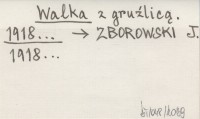 Walka z gruźlicą.
1918... → ZBOROWSKI J.
1918...